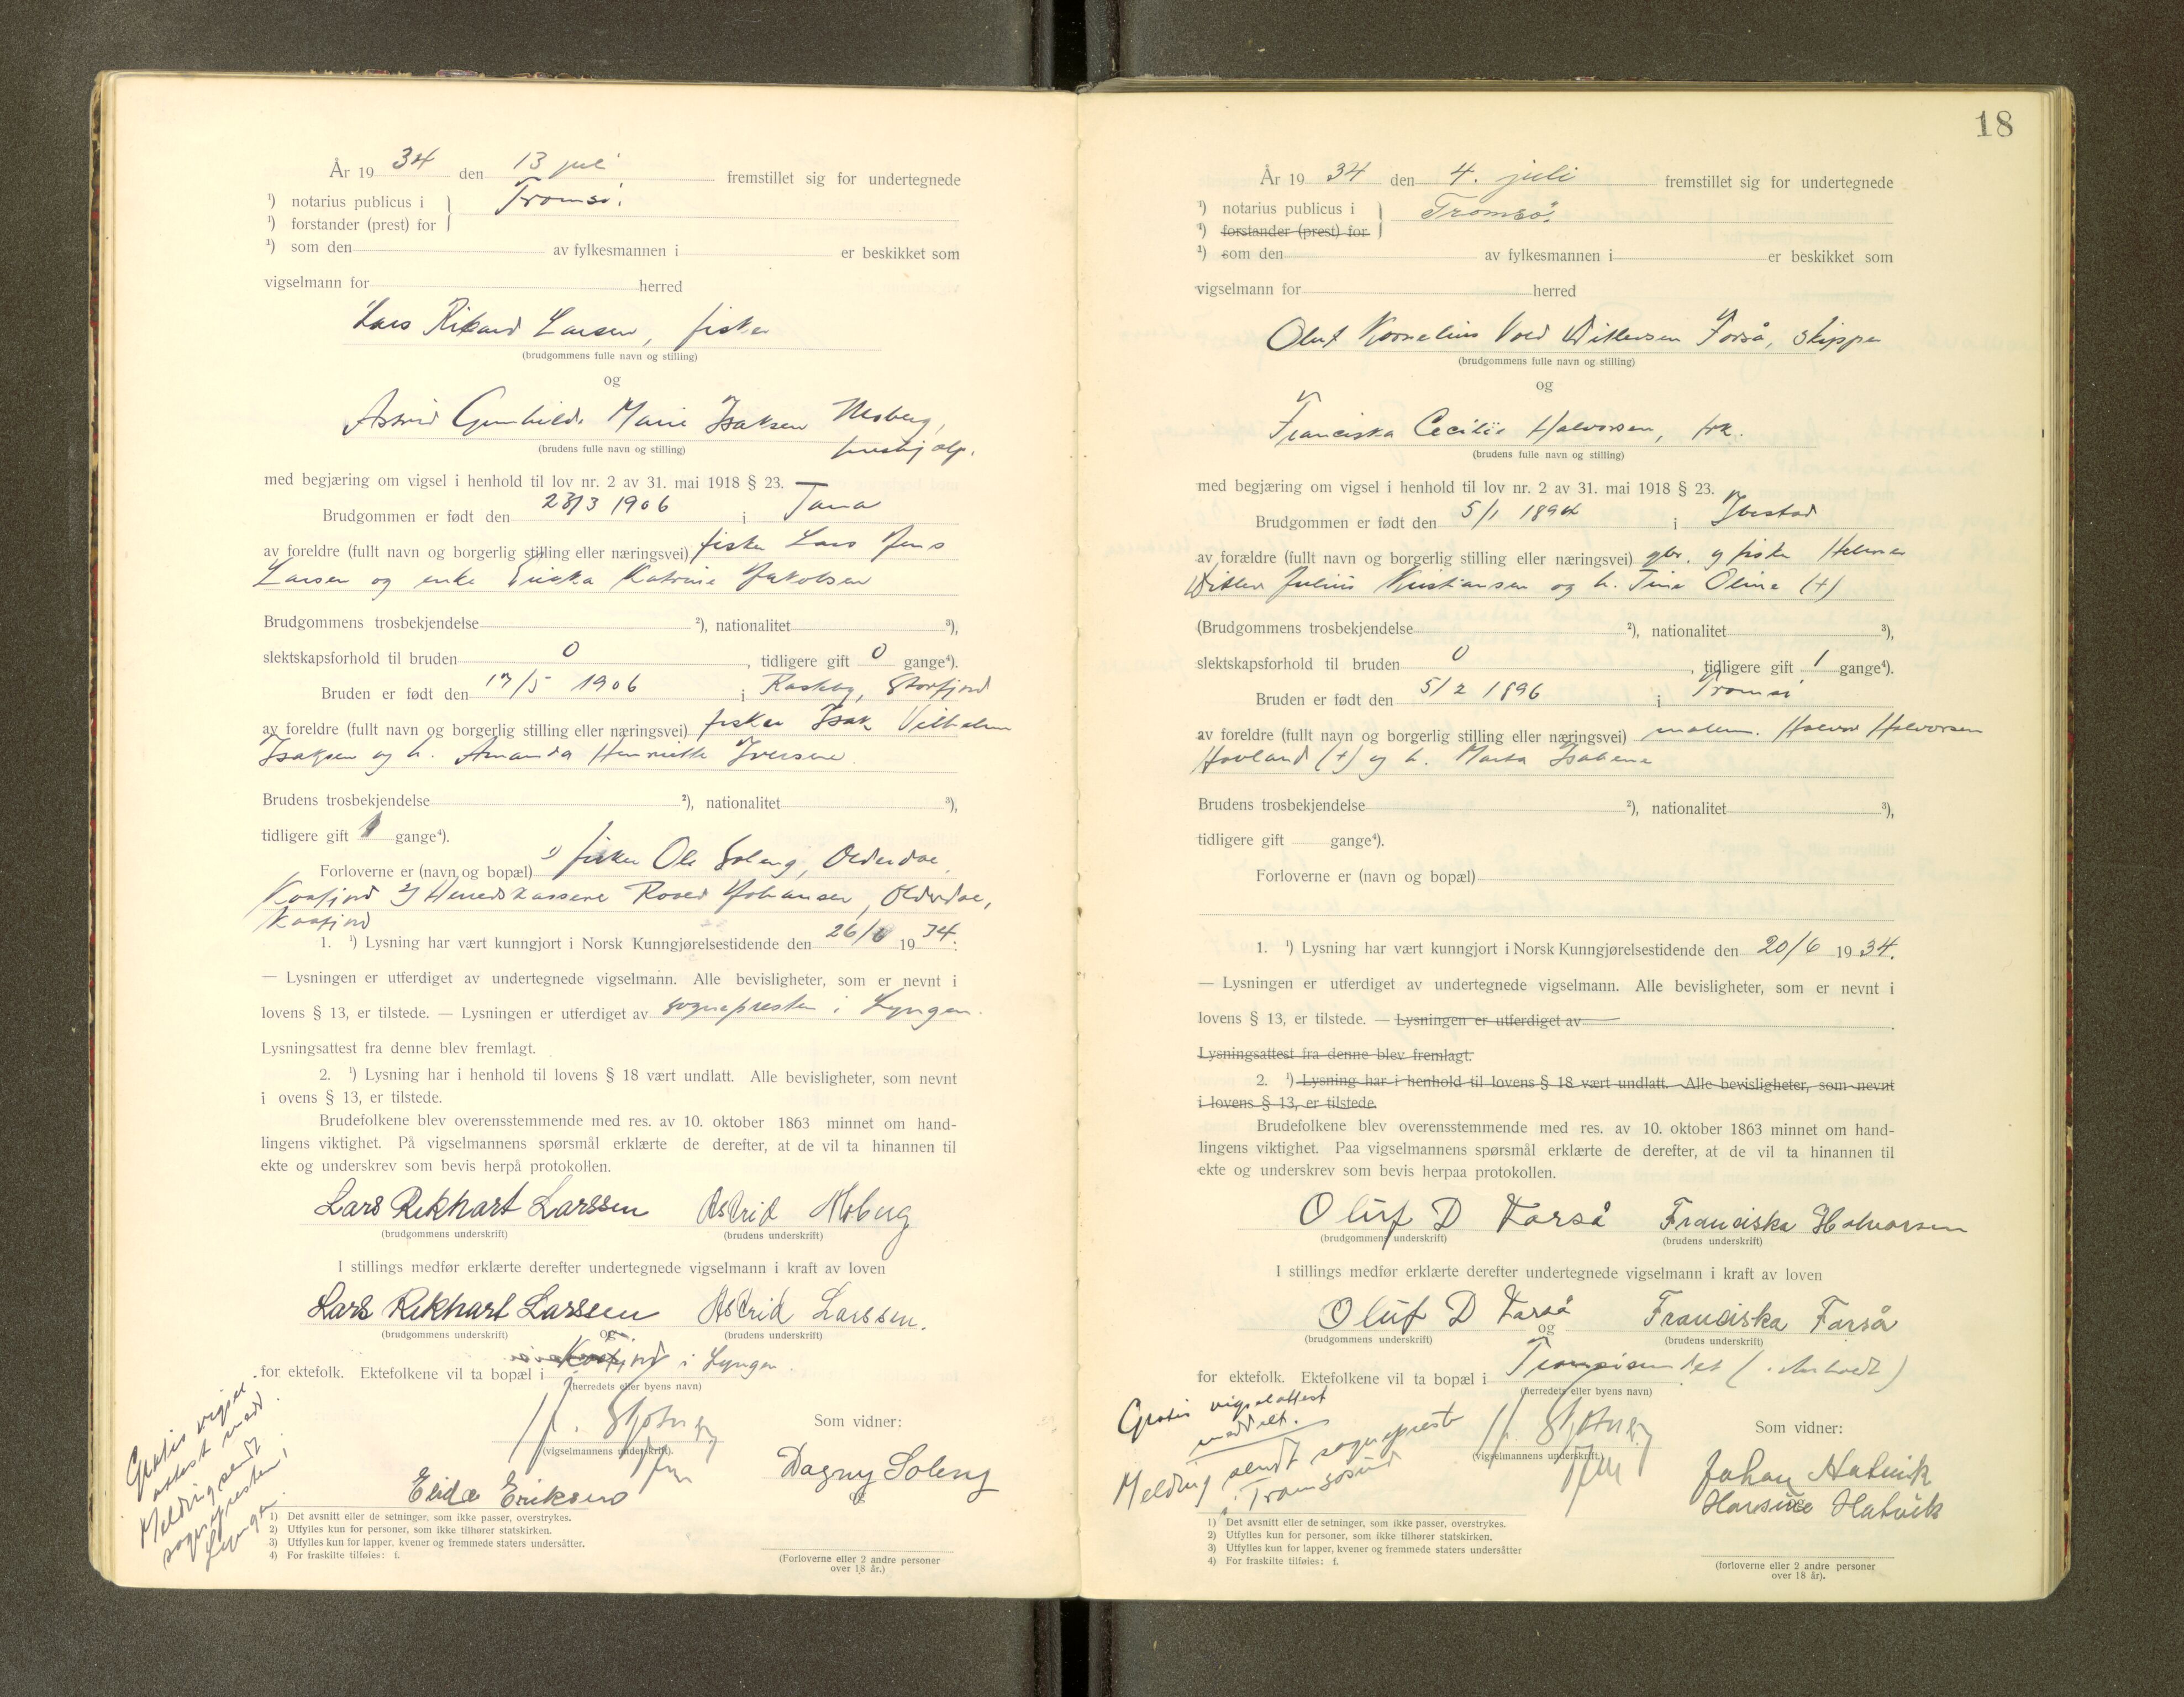 År 19 34 den 13 juli fremstillet sig for undertegnede
¹) notarius publicus i Tromsö.
¹) forstander (prest) for
¹) som den av fylkesmannen i er beskikket som
vigselmann for herred
Lars Rikard Larsen, fisker
(brudgommens fulle navn og stilling)
og
Astrid Gunhild Marie Isaksen Moberg,
hushjelp.
(brudens fulle navn og stilling)
med begjæring om vigsel i henhold til lov nr. 2 av 31. mai 1918 § 23.
Brudgommen er født den 23/3 1906 i Tana
av foreldre (fullt navn og borgerlig stilling eller næringsvei) fisker Lars Jens
Larsen og enke Ericka Katrine Jakobsen
Brudgommens trosbekjendelse ²), nationalitet ³),
slektskapsforhold til bruden 0, tidligere gift 0 gange⁴).
Bruden er født den 17/5 1906 i Storfjord
av foreldre (fullt navn og borgerlig stilling eller næringsvei) fisker Isak Vilhelm
Isaksen og h. Amanda Henriette Iversen.
Brudens trosbekjendelse ²), nationalitet ³),
tidligere gift gange⁴).
Forloverne er (navn og bopæl) 1) fisker Ole Soleng, Olderdal,
Kaafjord 2) Herredskasserer Johansen, Olderdal,
Kaafjord
1. ¹) Lysning har vært kunngjort i Norsk Kunngjørelsestidende den 26/6 1934.
— Lysningen er utferdiget av undertegnede vigselmann. Alle bevisligheter, som er nevnt i
lovens § 13, er tilstede. — Lysningen er utferdiget av sognepresten i Lyngen.
Lysningsattest fra denne blev fremlagt.
2. ¹) Lysning har i henhold til lovens § 18 vært undlatt. Alle bevisligheter, som nevnt
i ovens § 13, er tilstede.
Brudefolkene blev overensstemmende med res. av 10. oktober 1863 minnet om hand-
lingens viktighet. På vigselmannens spørsmål erklærte de derefter, at de vil ta hinannen til
ekte og underskrev som bevis herpå protokollen.
Lars Rekhart Larssen Astrid Moberg
(brudgommens underskrift) (brudens underskrift)
I stillings medfør erklærte derefter undertegnede vigselmann i kraft av loven
Lars Rekhart Larssen Astrid Larssen.
(brudgommens underskrift) og (brudens underskrift)
for ektefolk. Ektefolkene vil ta bopæl i Kaafjord i Lyngen.
(herredets eller byens navn)
Som vidner:
(vigselmannens underskrift).
Dagny Soleng
og
Elida Eriksen
Gratis vigsel-
attest medd.
Melding sendt
sognepresten i
Lyngen.
1) Det avsnitt eller de setninger, som ikke passer, overstrykes.
2) Utfylles kun for personer, som ikke tilhører statskirken.
3) Utfylles kun for lapper, kvener og fremmede staters undersåtter.
4) For fraskilte tilføies: f.
(Forloverne eller 2 andre personer
over 18 år.)
18
År 19 34 den 4. juli fremstillet sig for undertegnede
¹) notarius publicus i Tromsö.
¹) forstander (prest) for
¹) som den av fylkesmannen i er beskikket som
vigselmann for herred
Oluf Kornelius Ditlevsen Forså, skipper
(brudgommens fulle navn og stilling)
og
Franciska Cecilie Halvorsen, frk.
(brudens fulle navn og stilling)
med begjæring om vigsel i henhold til lov nr. 2 av 31. mai 1918 § 23.
Brudgommen er født den 5/1 1894 i Ibestad
av forældre (fullt navn og borgerlig stilling eller næringsvei) gbr. og fisker Helmer
Ditlev Julius Kristiansen og h. Tina Oline (+)
(Brudgommens trosbekjendelse ²), nationalitet ³),
slektskapsforhold til bruden 0, tidligere gift 1 gange⁴).
Bruden er født den 5/2 1896 i Tromsö
av foreldre (fullt navn og borgerlig stilling eller næringsvei) malerm. Halvor Halvorsen
Hovland (+) og h. Marta
Brudens trosbekjendelse ²), nationalitet ³),
tidligere gift gange⁴).
Forloverne er (navn og bopæl)
1. ¹) Lysning har vært kunngjort i Norsk Kunngjørelsestidende den 20/6 1934.
— Lysningen er utferdiget av undertegnede vigselmann. Alle bevisligheter, som er nevnt i
lovens § 13, er tilstede. — Lysningen er utferdiget av
Lysningsattest fra denne blev fremlagt.
2. ¹) Lysning har i henhold til lovens § 18 vært undlatt. Alle bevisligheter, som nevnt
i lovens § 13, er tilstede.
Brudefolkene blev overensstemmende med res. av 10. oktober 1863 minnet om hand-
lingens viktighet. Paa vigselmannens spørsmål erklærte de derefter, at de vil ta hinannen til
ekte og underskrev som bevis herpaa protokollen.
Oluf D Forså Franciska Halvorsen
(brudgommens underskrift) (brudens underskrift)
I stillings medfør erklærte derefter undertegnede vigselmann i kraft av loven
Oluf D Forså Franciska Forså
(brudgommens underskrift) og (brudens underskrift)
for ektefolk. Ektefolkene vil ta bopæl i Tromsösundet
(herredets eller byens navn)
Gratis vigselattest
meddelt.
Melding sendt sogneprest
i Tromsösund
Som vidner:
(vigselmannens underskrift).
Johan Hatvik
og
Hansine Hatvik
1) Det avsnitt eller de setninger, som ikke passer, overstrykes.
2) Utfylles kun for personer, som ikke tilhører statskirken.
3) Utfylles kun for lapper, kvener og fremmede staters undersåtter
4) For fraskilte tilføies: f.
(forloverne eller 2 andre personer
over 18 år).